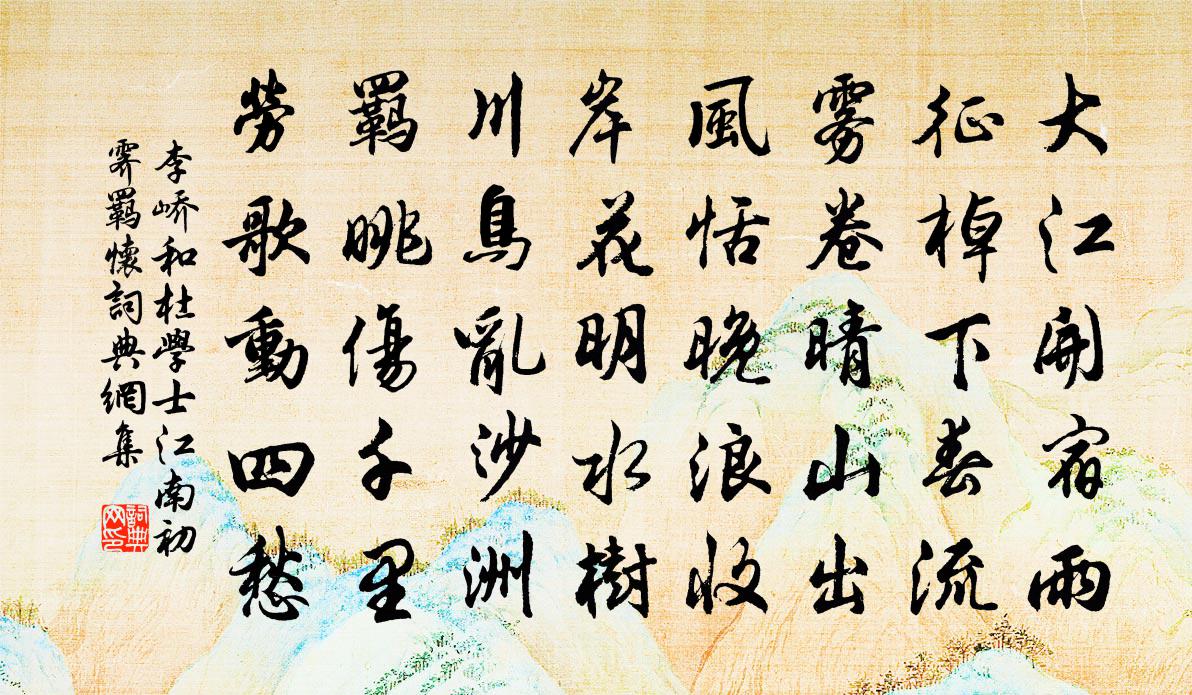 大江開宿雨
征棹下春流
霧卷晴山出
風恬晚浪收
岸花明水樹
川鳥亂沙洲
羈眺傷千里
勞歌動四愁
李嶠和杜學士江南初
霽羈懷詞典網集
詞典
网印